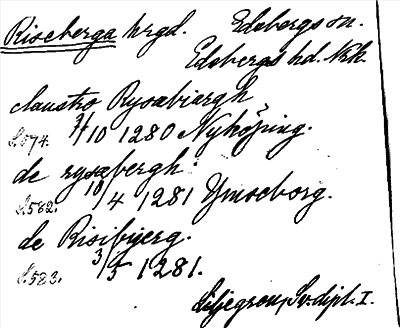 Riseberga hrgd. Edsbergs sn.
Edsbergs hd. Nrk.
claustro Rysæbiærgh
S. 574. 7/10 1280 Nyköping.
de rysæbergh.
S. 582. 10/4 1281 Ymseborg.
de Risibyerg.
S. 583. 3/5 1281.
Liljegren, Sv. dipl. I.